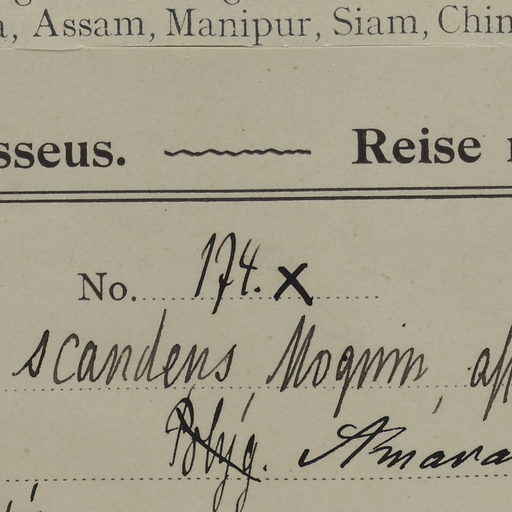 a, Assam, Manipur, Siam, Chin
sseus. Reise
No. 174. x
scandens Moquin, ap
Polyg. Amara